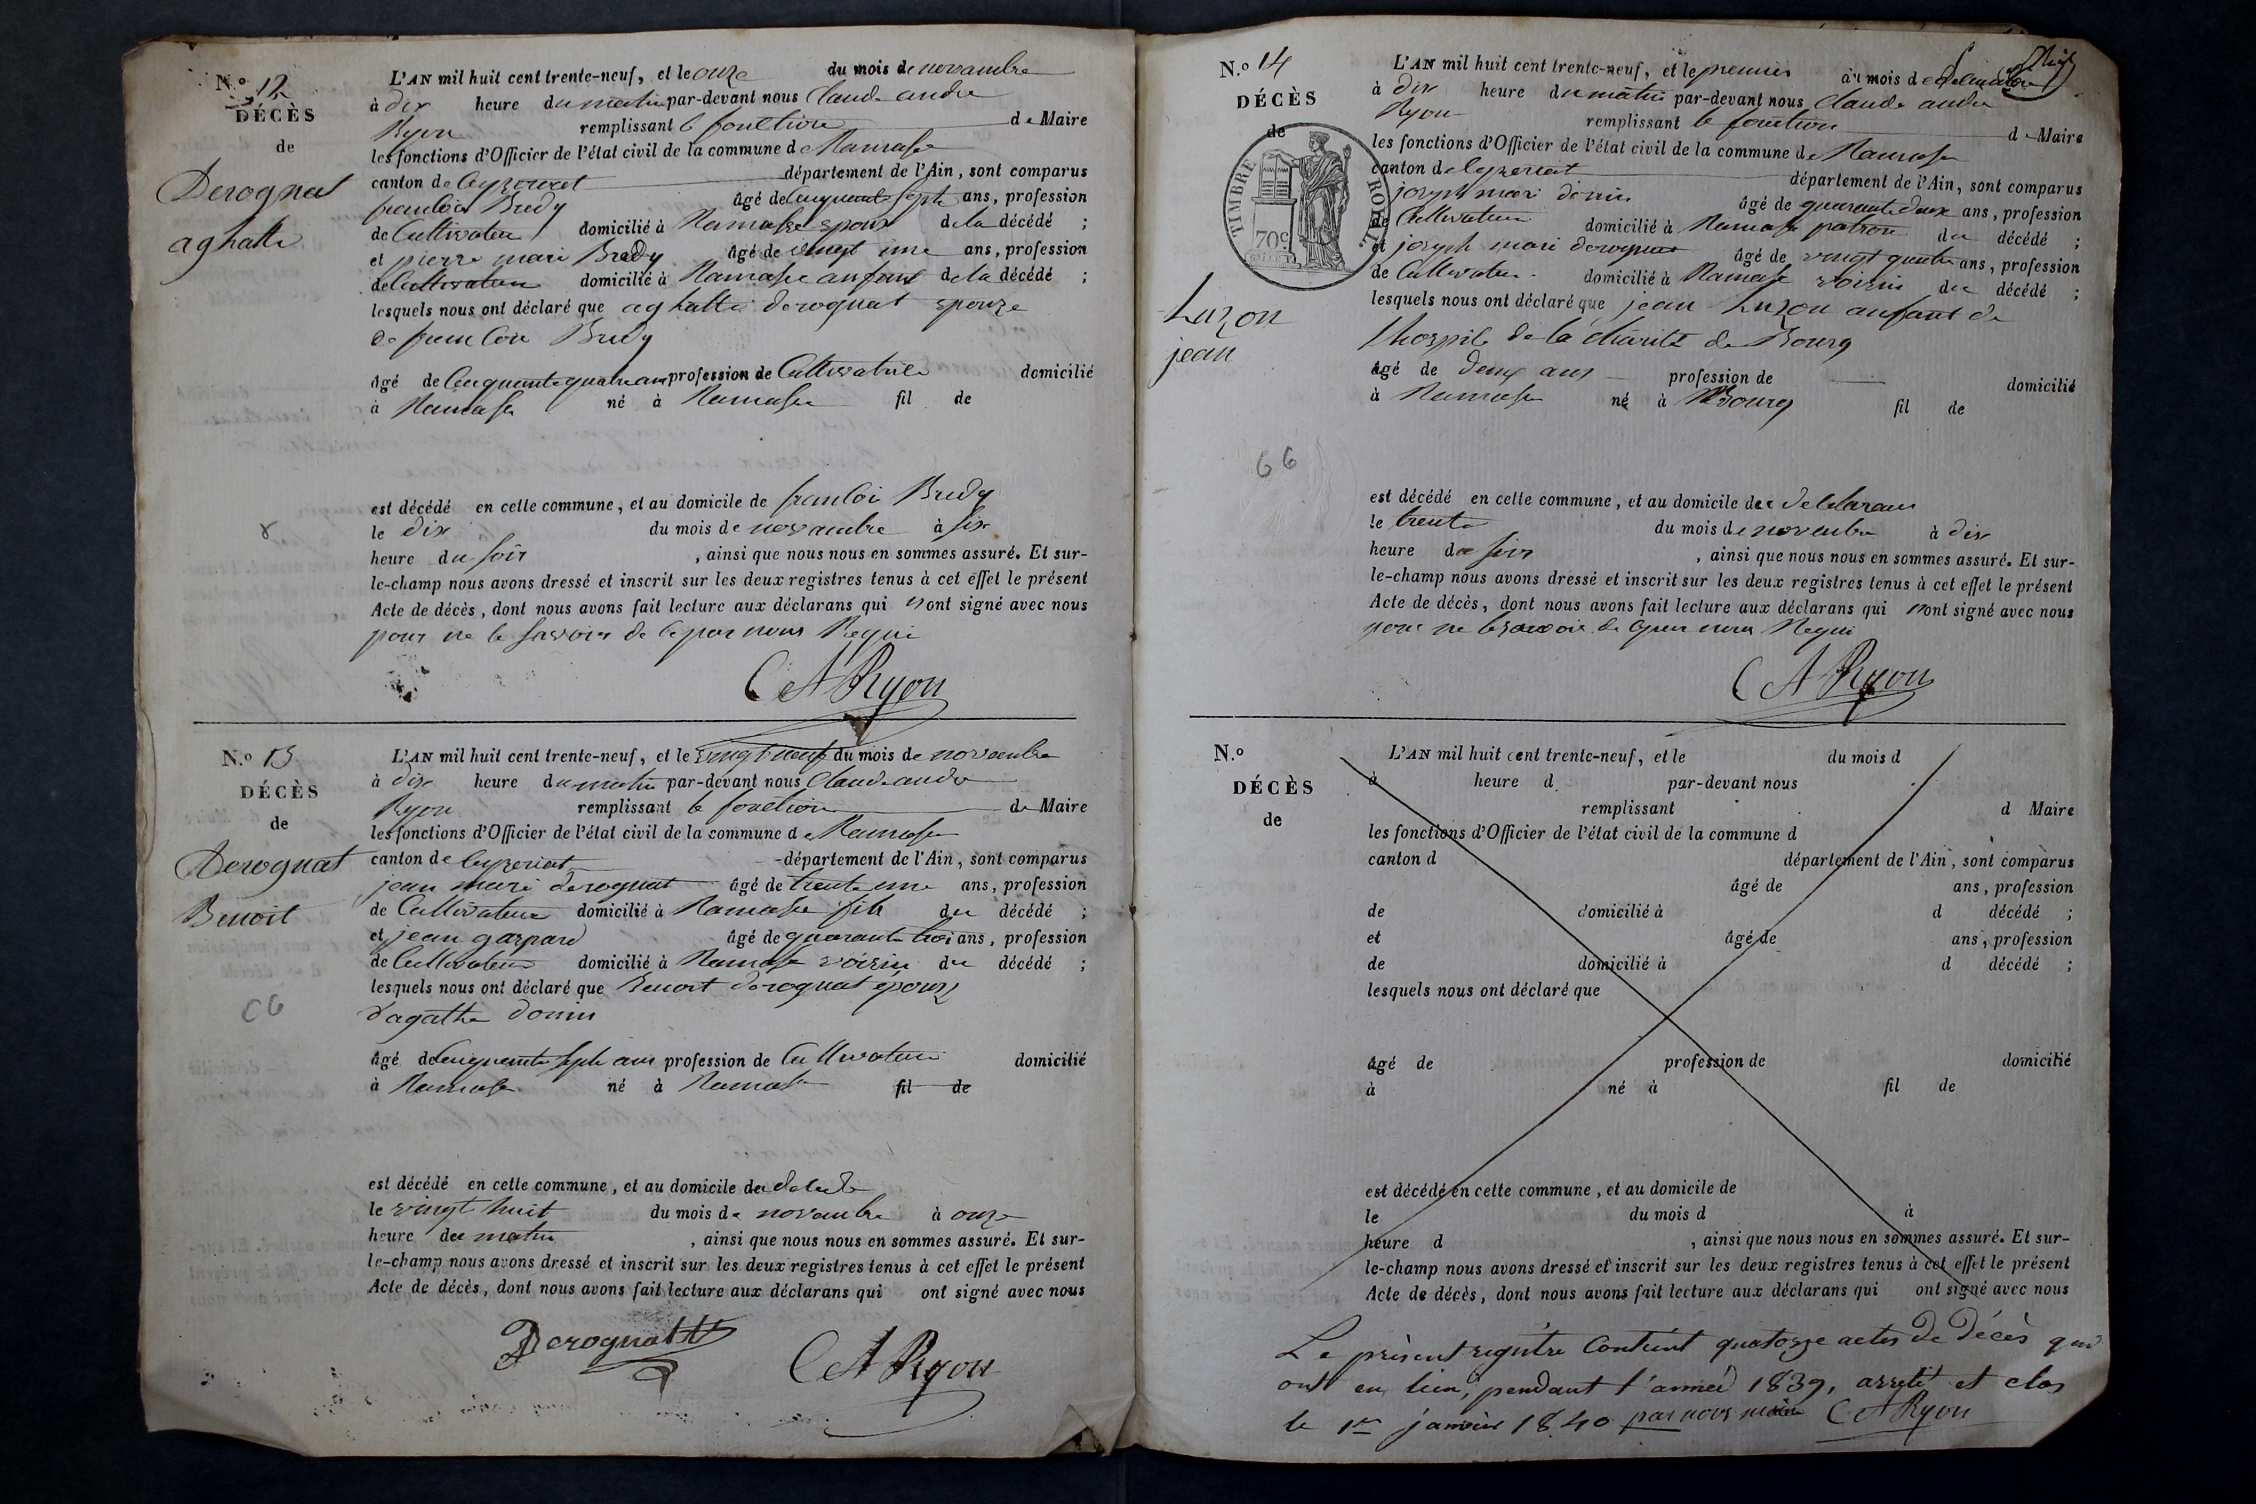 N.o 12
DÉCÈS
de
Derognat
aghatte
L'AN mil huit cent trente-neuf, et le onze du mois de novambre
à dix heure du matin par-devant nous Claude andre
Ryon remplissant le fonction de Maire
les fonctions d'Officier de l'état civil de la commune de Ramasse
canton de Ceyzeriat département de l'Ain, sont comparus
francois Bredy âgé de cinquante sept ans, profession
de Cultivateur domicilié à Ramasse epoux de la décédé ;
et pierre marie Bredy âgé de vingt une ans, profession
de Cultivateur domicilié à Ramasse anfant de la décédé ;
lesquels nous ont déclaré que aghatte derognat epouze
de francois Bredy
âgé de Cinquante quatre ans profession de Cultivatrice domicilié
à Ramasse né à Ramasse fil de
est décédé en cette commune, et au domicile de francoi Bredy
le dix du mois de novambre à six
heure du soir , ainsi que nous nous en sommes assuré. Et sur-
le-champ nous avons dressé et inscrit sur les deux registres tenus à cet effet le présent
Acte de décès, dont nous avons fait lecture aux déclarans qui nont signé avec nous
pour ne le savoir de ce par nous Requi
C A Ryon
N.o 13
DÉCÈS
de
Derognat
Benoit
C6
L'AN mil huit cent trente-neuf, et le vingt neuf du mois de novambre
à dix heure du matin par-devant nous Claude andre
Ryon remplissant le fonction de Maire
les fonctions d'Officier de l'état civil de la commune de Ramasse
canton de Ceyzeriat département de l'Ain, sont comparus
jean marie derognat âgé de trente une ans, profession
de Cultivateur domicilié à Ramasse fils du décédé ;
et jean gaspard âgé de quarante trois ans, profession
de Cultivateur domicilié à Ramasse voisin du décédé ;
lesquels nous ont déclaré que Benoit derognat epoux
d'agathe donin
âgé de Cinquante sept ans profession de Cultivateur domicilié
à Ramasse né à Ramasse fil de
est décédé en cette commune, et au domicile du
le vingt huit du mois de novambre à onze
heure du matin , ainsi que nous nous en sommes assuré. Et sur-
le-champ nous avons dressé et inscrit sur les deux registres tenus à cet effet le présent
Acte de décès, dont nous avons fait lecture aux déclarans qui ont signé avec nous
Derognat
C A Ryon
N.o 14
DÉCÈS
de
TIMBRE ROYAL
70c
Luzon
jean
66
L'AN mil huit cent trente-neuf, et le premier du mois de
à dix heure du matin par-devant nous Claude andre
Ryon remplissant le fonction de Maire
les fonctions d'Officier de l'état civil de la commune de Ramasse
canton de Ceyzeriat département de l'Ain, sont comparus
joseph marie donin âgé de quarante deux ans, profession
de Cultivateur domicilié à Ramasse patron du décédé ;
et joseph marie derognat âgé de vingt quatre ans, profession
de Cultivateur domicilié à Ramasse voisin du décédé ;
lesquels nous ont déclaré que jean Luzon anfant de
l'hospice de la charité de Bourg
âgé de deux ans profession de domicilié
à Ramasse né à Bourg fil de
est décédé en cette commune, et au domicile de
le trente du mois de novembre à dix
heure du soir , ainsi que nous nous en sommes assuré. Et sur-
le-champ nous avons dressé et inscrit sur les deux registres tenus à cet effet le présent
Acte de décès, dont nous avons fait lecture aux déclarans qui nont signé avec nous
pour ne le savoir de ce par nous Requi
C A Ryon
N.o
DÉCÈS
de
L'AN mil huit cent trente-neuf, et le du mois d
à heure d par-devant nous
remplissant d Maire
les fonctions d'Officier de l'état civil de la commune d
canton d département de l'Ain, sont comparus
âgé de ans, profession
de domicilié à d décédé ;
et âgé de ans, profession
de domicilié à d décédé ;
lesquels nous ont déclaré que
âgé de profession de domicilié
à né à fil de
est décédé en cette commune, et au domicile de
le du mois d à
heure d , ainsi que nous nous en sommes assuré. Et sur-
le-champ nous avons dressé et inscrit sur les deux registres tenus à cet effet le présent
Acte de décès, dont nous avons fait lecture aux déclarans qui ont signé avec nous
Le présent registre Contient quatorze actes de décès qui
ont eu lieu, pendant l'année 1839, arrêté et clos
le 1er janvier 1840 par nous maire C A Ryon